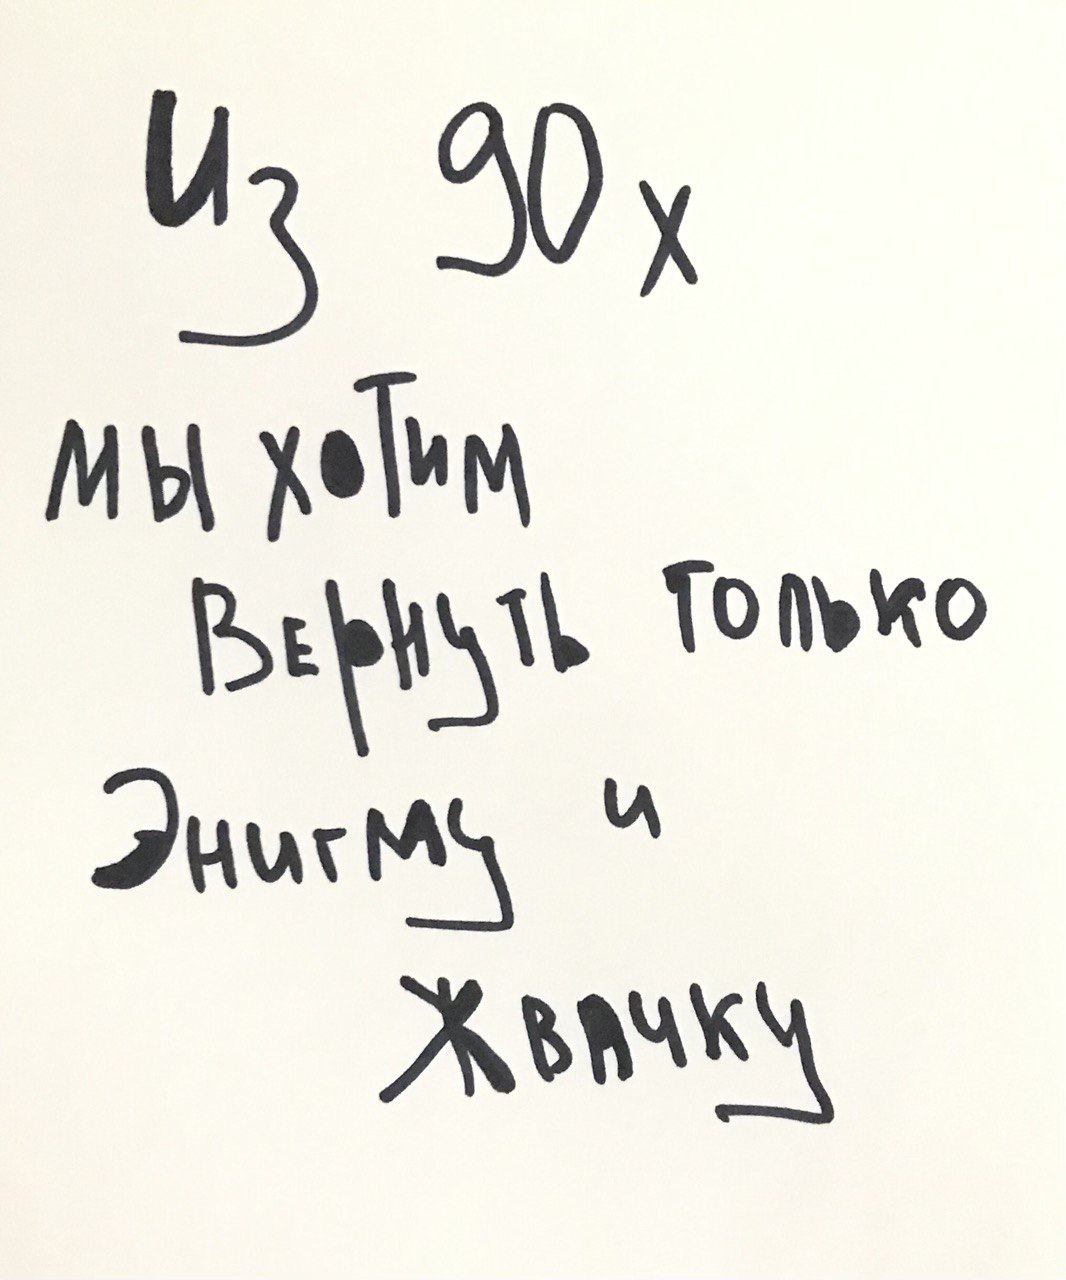 Из 90х
мы хотим
Вернуть только
Энигму и
Жвачку